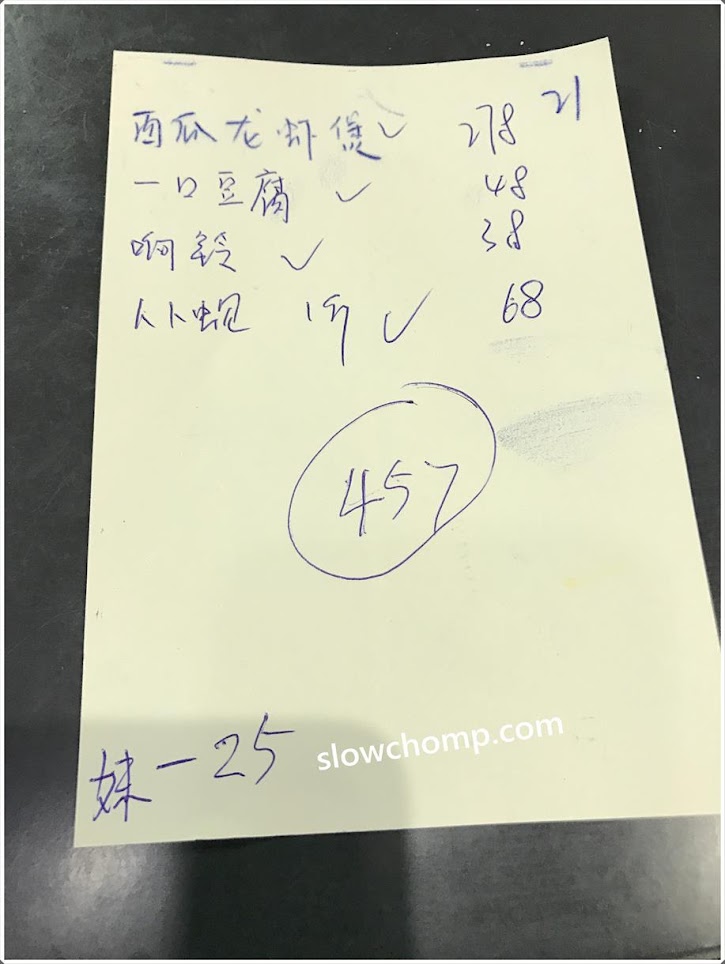 西瓜龙虾煲✓ 278 21
一口豆腐 ✓ 48
啊铃 ✓ 38
✓ 68
457
妹-25
slowchomp.com